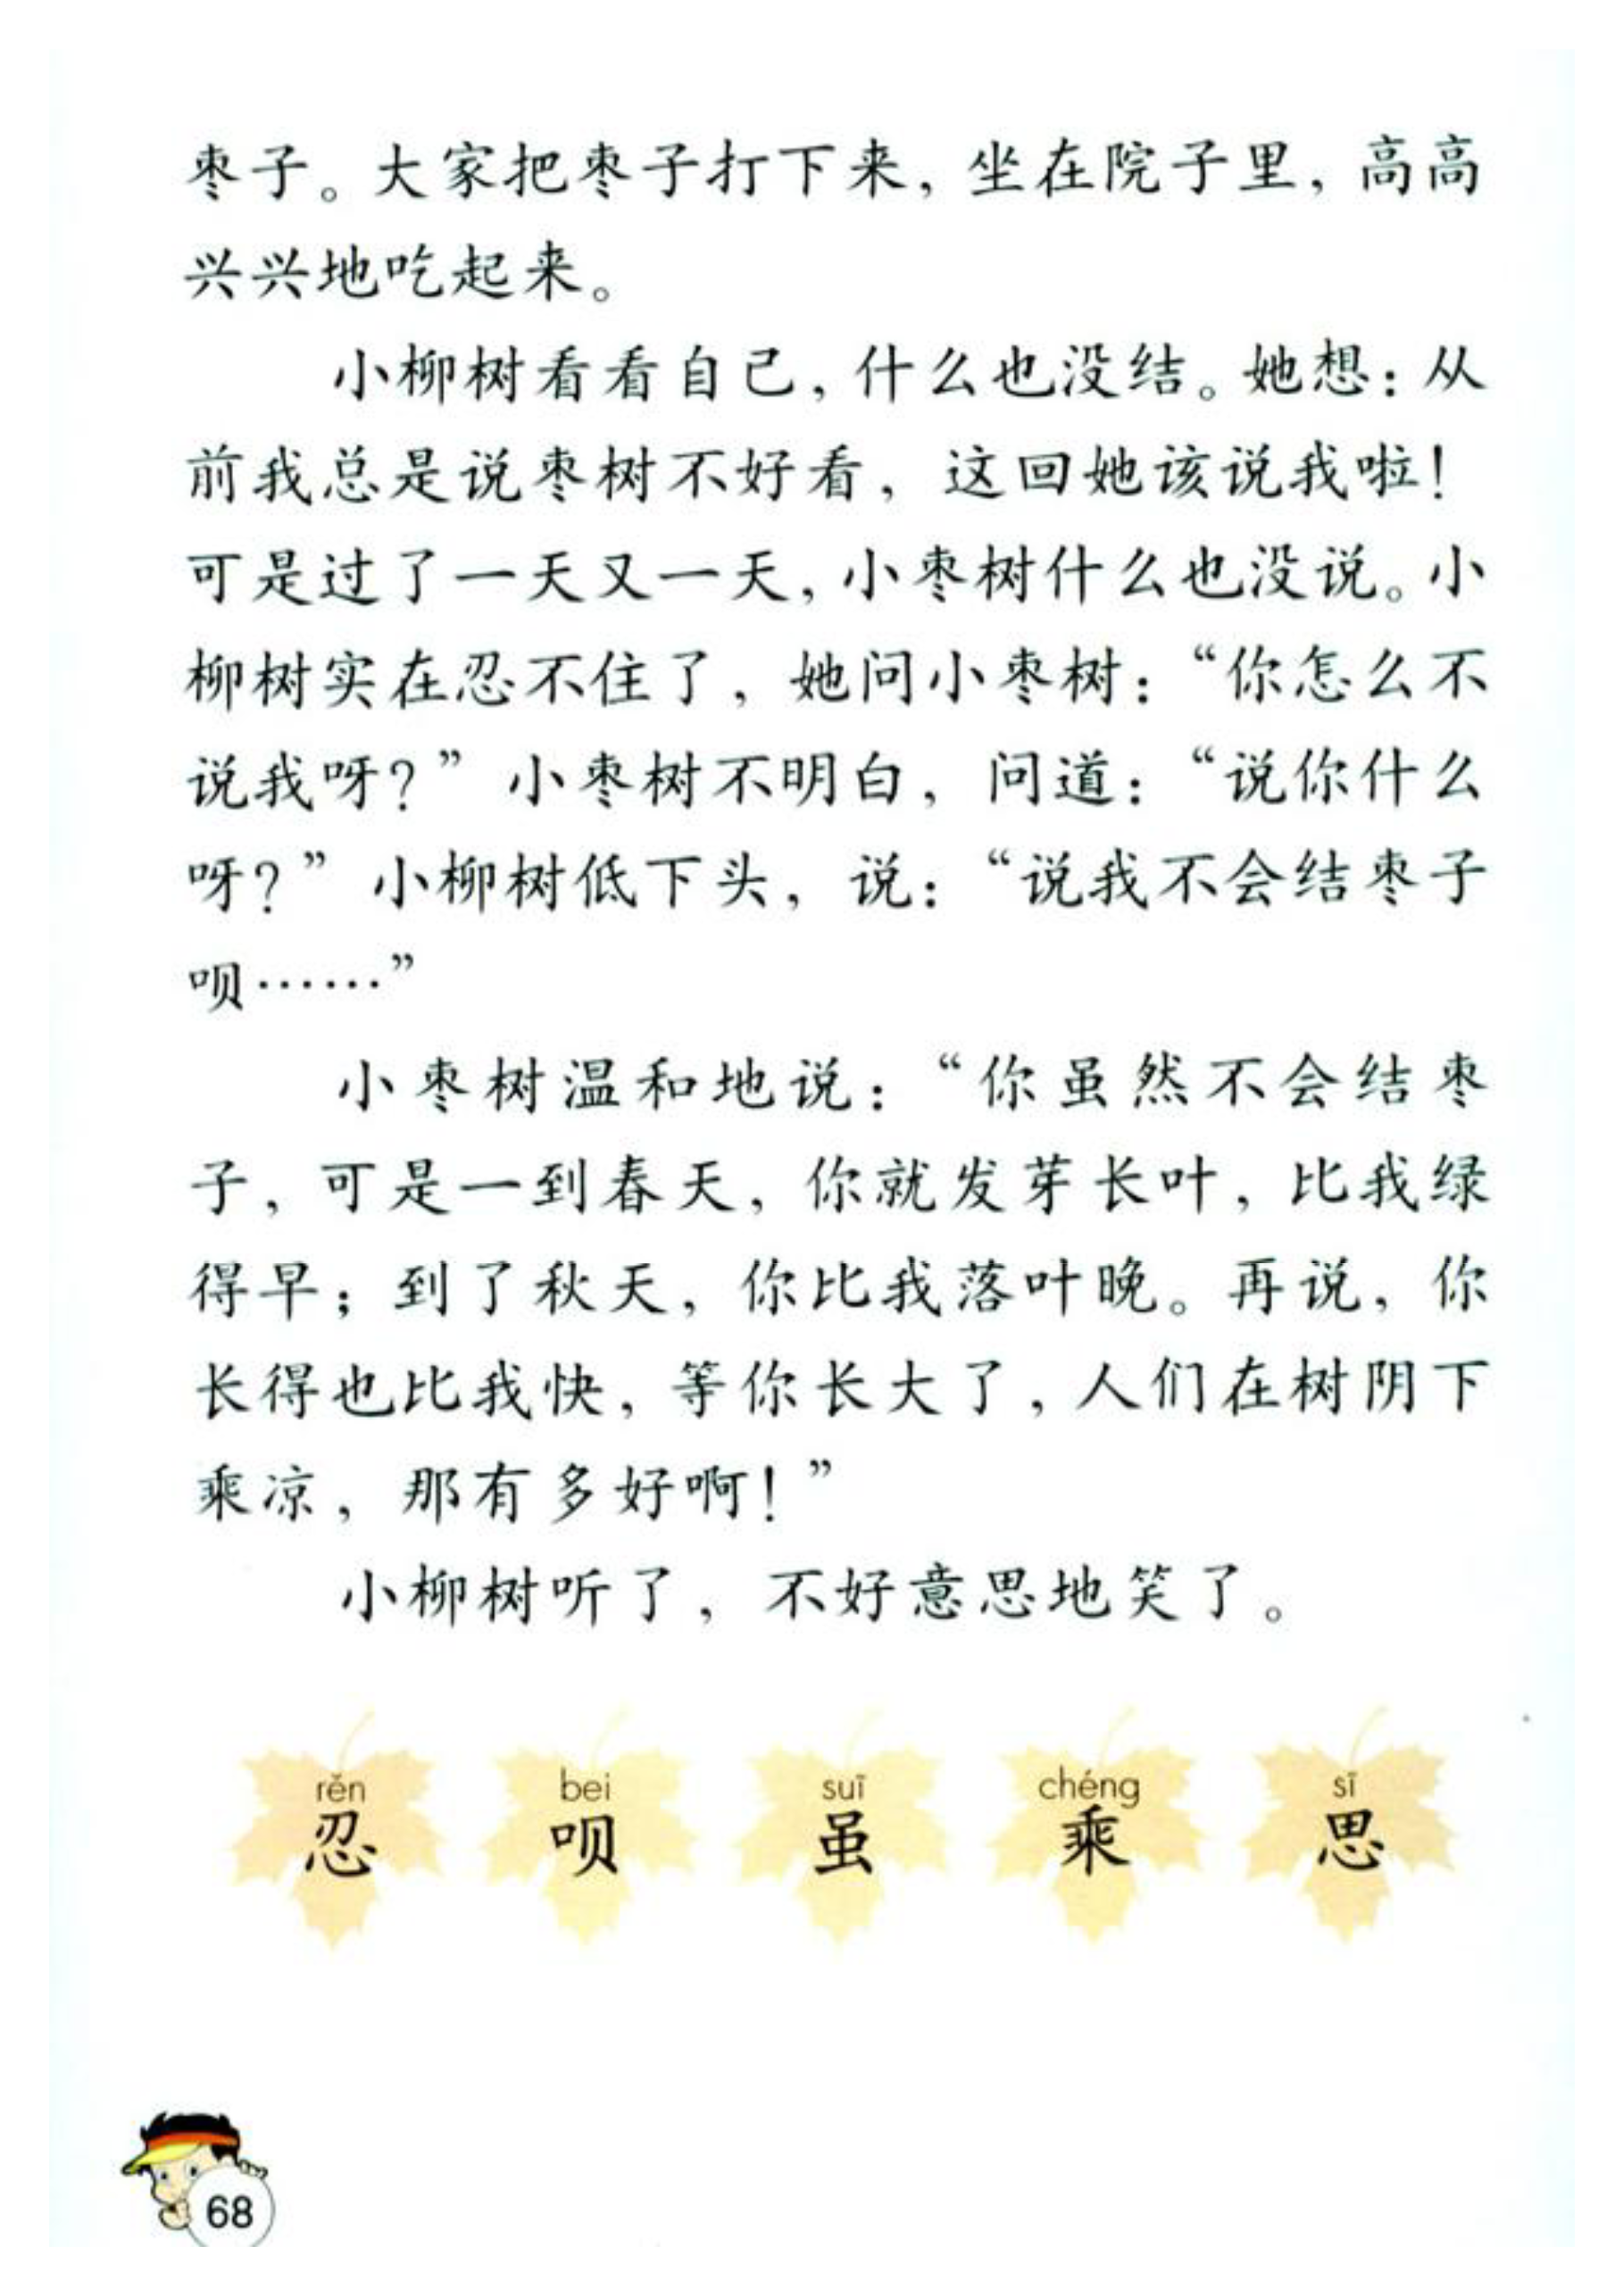 枣子。大家把枣子打下来，坐在院子里，高高
兴兴地吃起来。
小柳树看看自己，什么也没结。她想：从
前我总是说枣树不好看，这回她该说我啦！
可是过了一天又一天，小枣树什么也没说。小
柳树实在忍不住了，她问小枣树：“你怎么不
说我呀？”小枣树不明白，问道：“说你什么
呀？”小柳树低下头，说：“说我不会结枣子
呗……”
小枣树温和地说：“你虽然不会结枣
子，可是一到春天，你就发芽长叶，比我绿
得早；到了秋天，你比我落叶晚。再说，你
长得也比我快，等你长大了，人们在树阴下
乘凉，那有多好啊！”
小柳树听了，不好意思地笑了。
rěn bei suī chéng sī
忍 呗 虽 乘 思
68